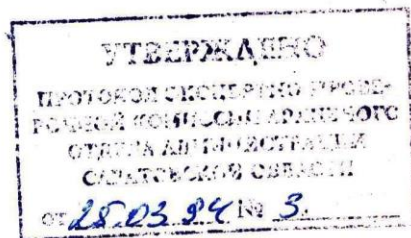 УТВЕРЖДЕНО
ПРОТОКОЛ ЭКСПЕРТНО ПРОВЕ-
РОЧНОЙ КОМИССИИ АРХИВНОГО
ОТДЕЛА АДМИНИСТРАЦИИ
САРАТОВСКОЙ ОБЛАСТИ
от 25.03.94 № 3.